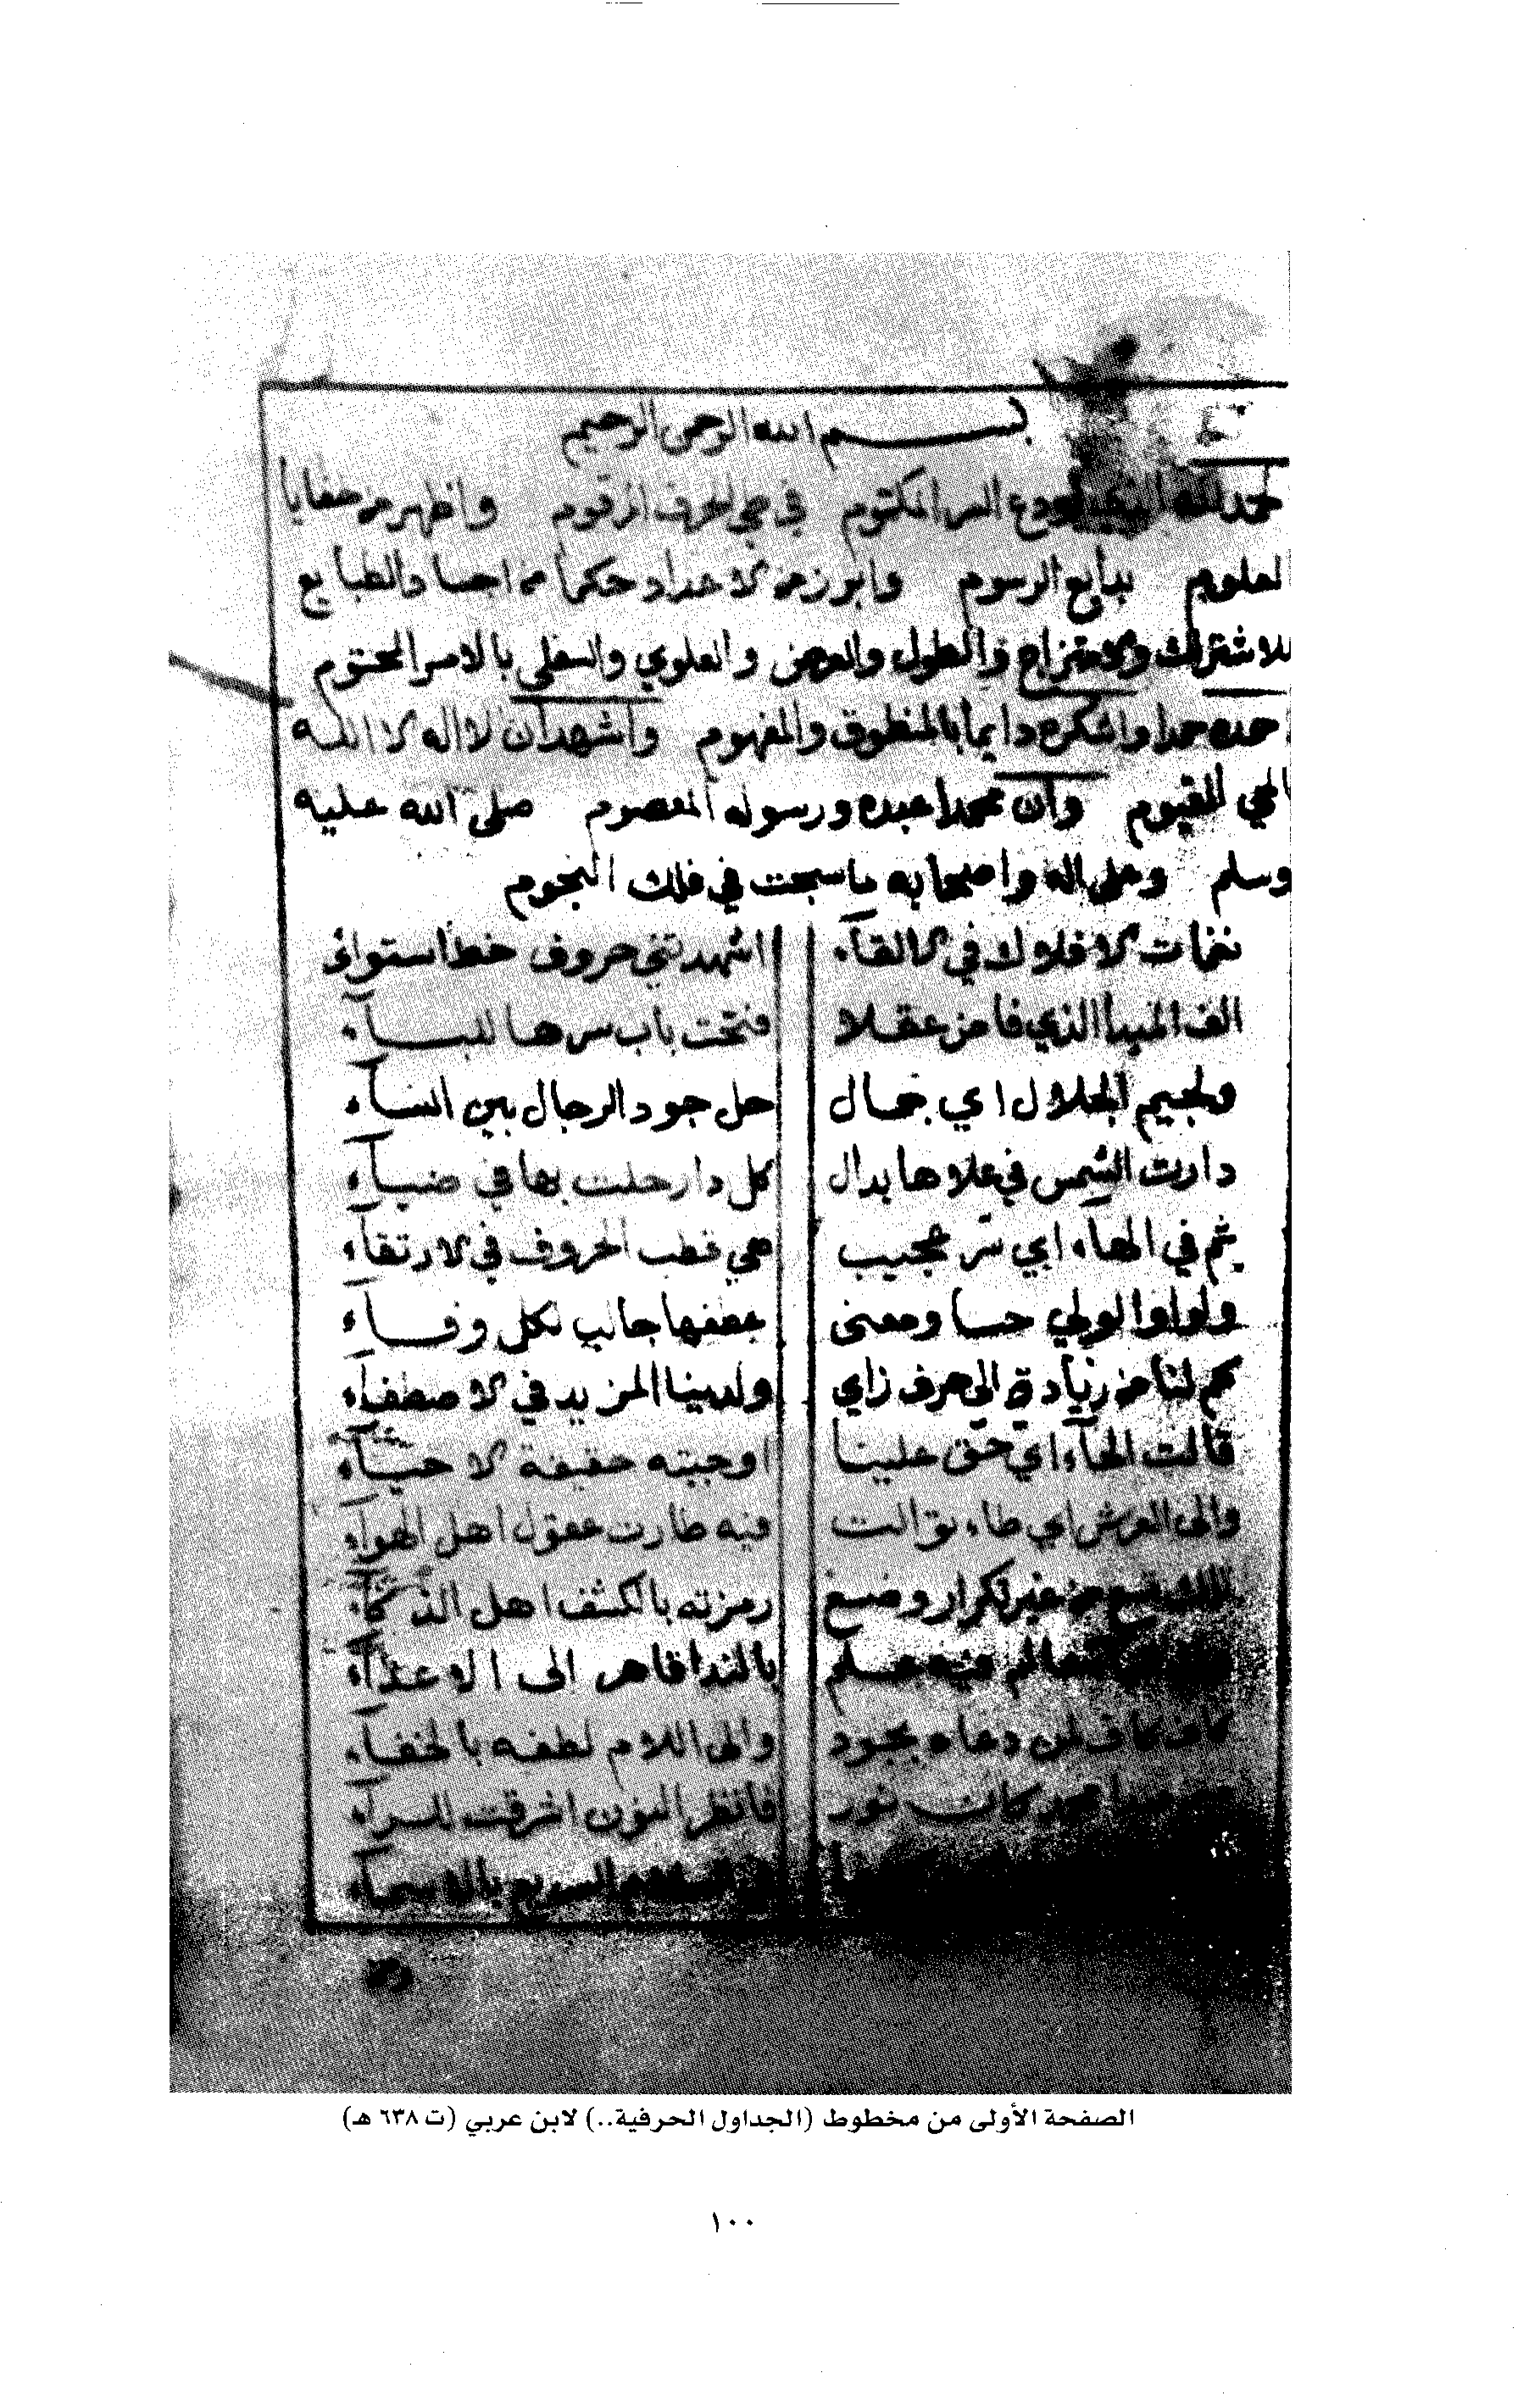 بسم الله الرحمن الرحيم
لحمد لله الذي اودع السر المكتوم في حي الحرف المرقوم واظهر من خفايا
لعلوم بدايع الرسوم وابرز من الاعداد حكما من اجساد الطبايع
للاشتراك والامتزاج والطول والعرض والعلوي والسفلي بالامر المحتوم
احمده حمدا واشكره دايما بالمنطوق والمفهوم واشهد ان لا اله الا الله
الحي القيوم وان محمدا عبده ورسوله المعصوم صلى الله عليه
وسلم وعلى اله واصحابه ما سبحت في فلك النجوم
نغمات الافلاك في الالقآء اشهدتني حروف خط استوائ
الف المبدا الذي فاض عقلا فتحت باب سرها للبآء
ولجيم الجلال اي جمال حل جود الرجال بين النسآء
دارت الشمس في علاها بدال كل دار حلت بها في ضيآء
ثم في الهاء اي سر عجيب هي قطب الحروف في الارتقآء
ولواو الولي حسا ومعنى عطفها جالب لكل وفآء
كم لنا من زيادة في حرف زاي ولدينا المزيد في الاصطفآء
قالت الحآء اي حق علينا اوجبته حقيقة الاحيآء
والى العرش اي طاء توالت فيه طارت عقول اهل الهوآء
تسع من غير تكرار وضع رمزته بالكشف اهل الذكآء
عالم فيه علم بالندا ظاهر الى الاعدآء
كاف كاف لمن دعاه بجود والى اللام لطفه بالخفآء
كانت نور فانظر النون اشرقت للسرآء
السريع بالاسمآء
الصفحة الأولى من مخطوط (الجداول الحرفية..) لابن عربي (ت ٦٣٨ هـ)
١٠٠